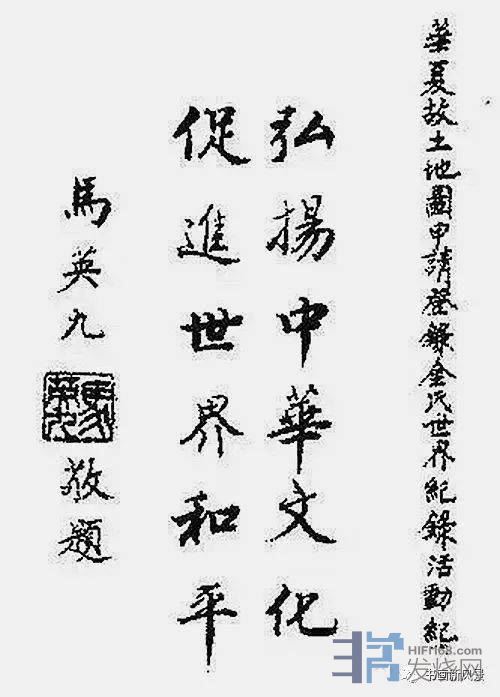 華夏故土地圖申請登錄金氏世界紀錄活動紀
弘揚中華文化
促進世界和平
馬英九
敬題
HIFI168.com
发烧网